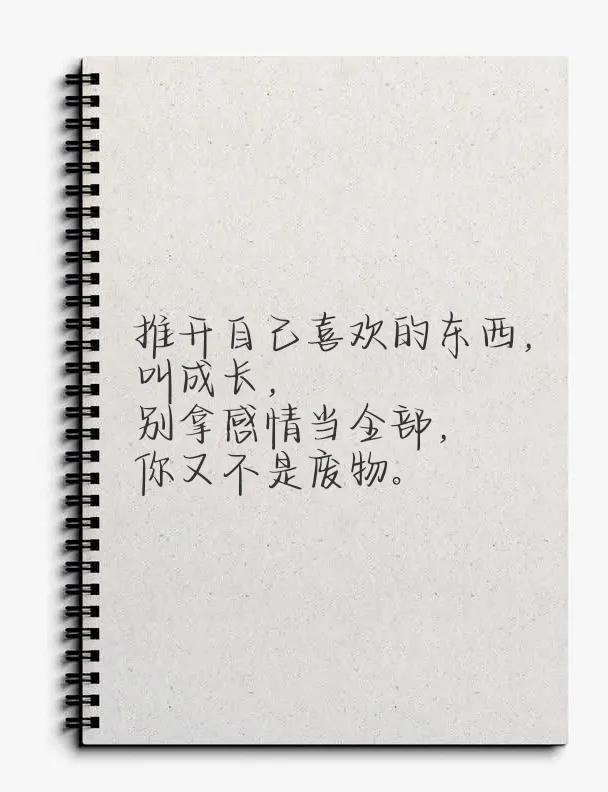 推开自己喜欢的东西，
叫成长，
别拿感情当全部，
你又不是废物。